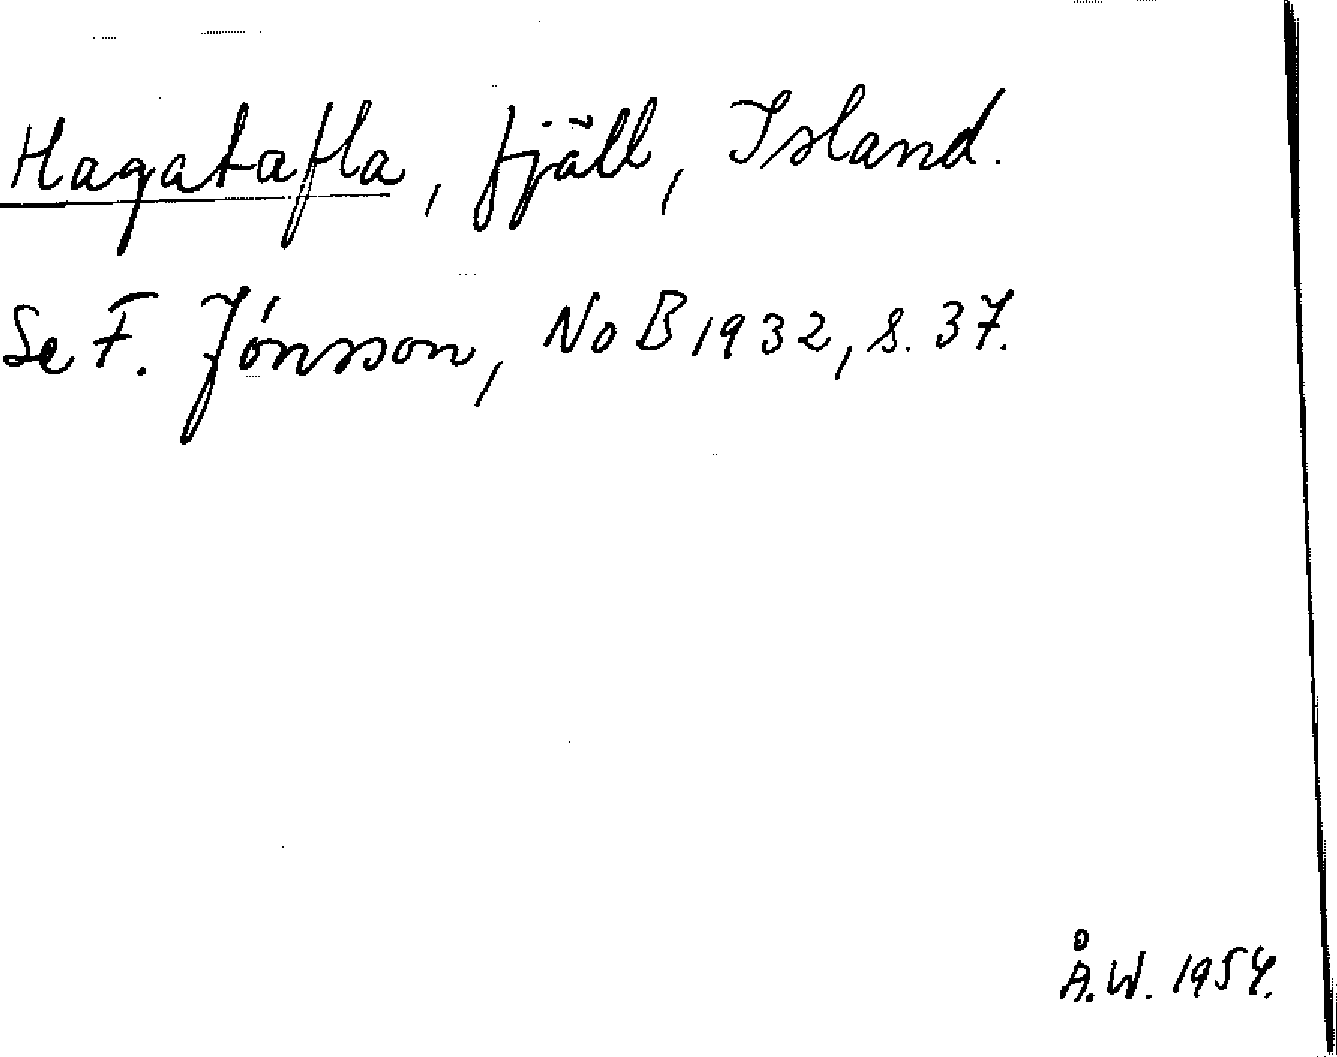 Hagatafla, fjäll, Island.
Se F. Jónsson, NoB 1932, s. 37.
Å.W. 1954.